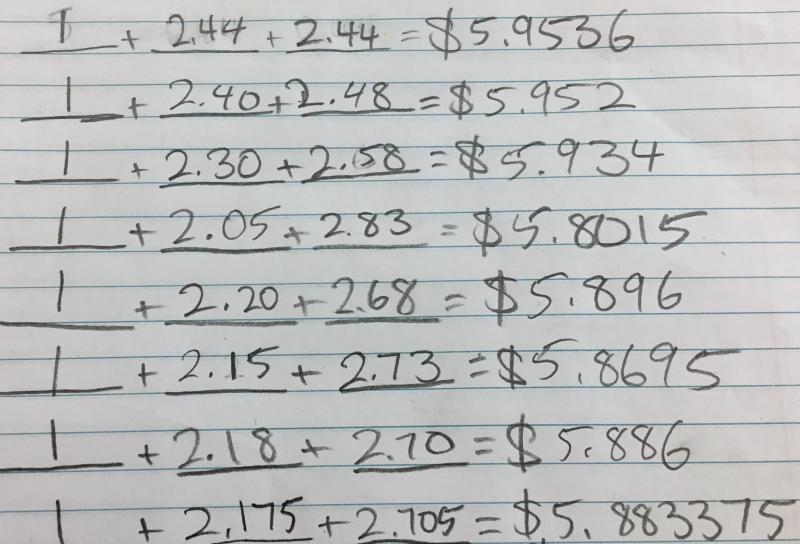 1 + 2.44 + 2.44 = $5.9536
1 + 2.40 + 2.48 = $5.952
1 + 2.30 + 2.58 = $5.934
1 + 2.05 + 2.83 = $5.8015
1 + 2.20 + 2.68 = $5.896
1 + 2.15 + 2.73 = $5.8695
1 + 2.18 + 2.70 = $5.886
1 + 2.175 + 2.705 = $5.883375